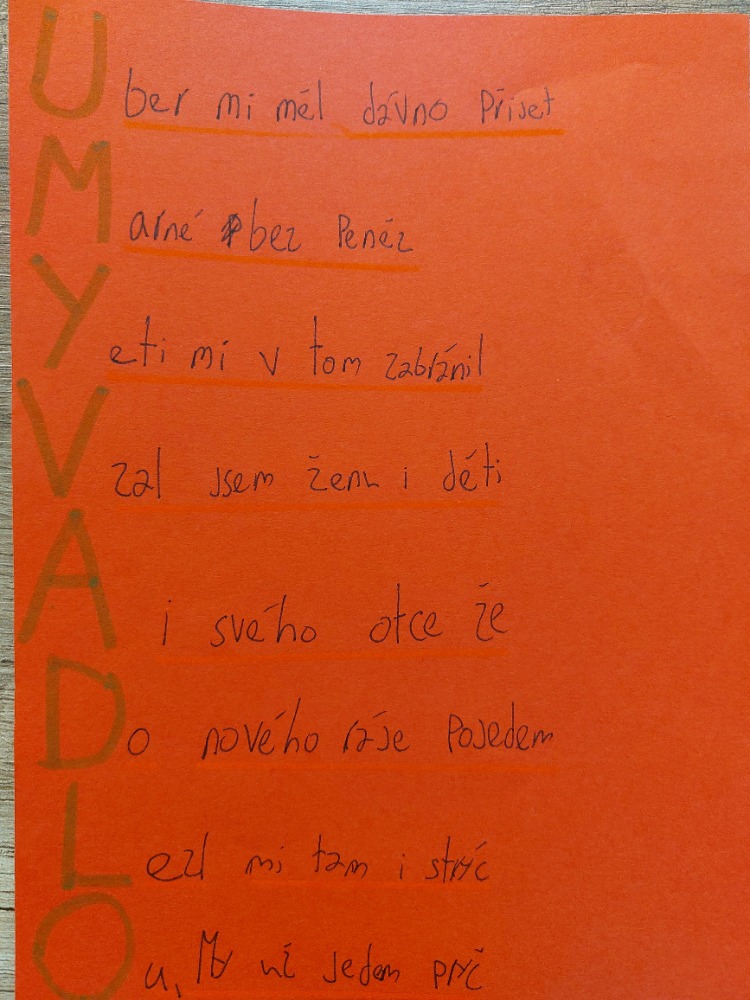 Uber mi měl dávno Přijet
Marné bez Peněz
Yeti mi v tom zabránil
Vzal jsem ženu i děti
A i svého otce že
Do nového ráje Pojedem
Lezl mi tam i strýc
Ou, My už jedem pryč